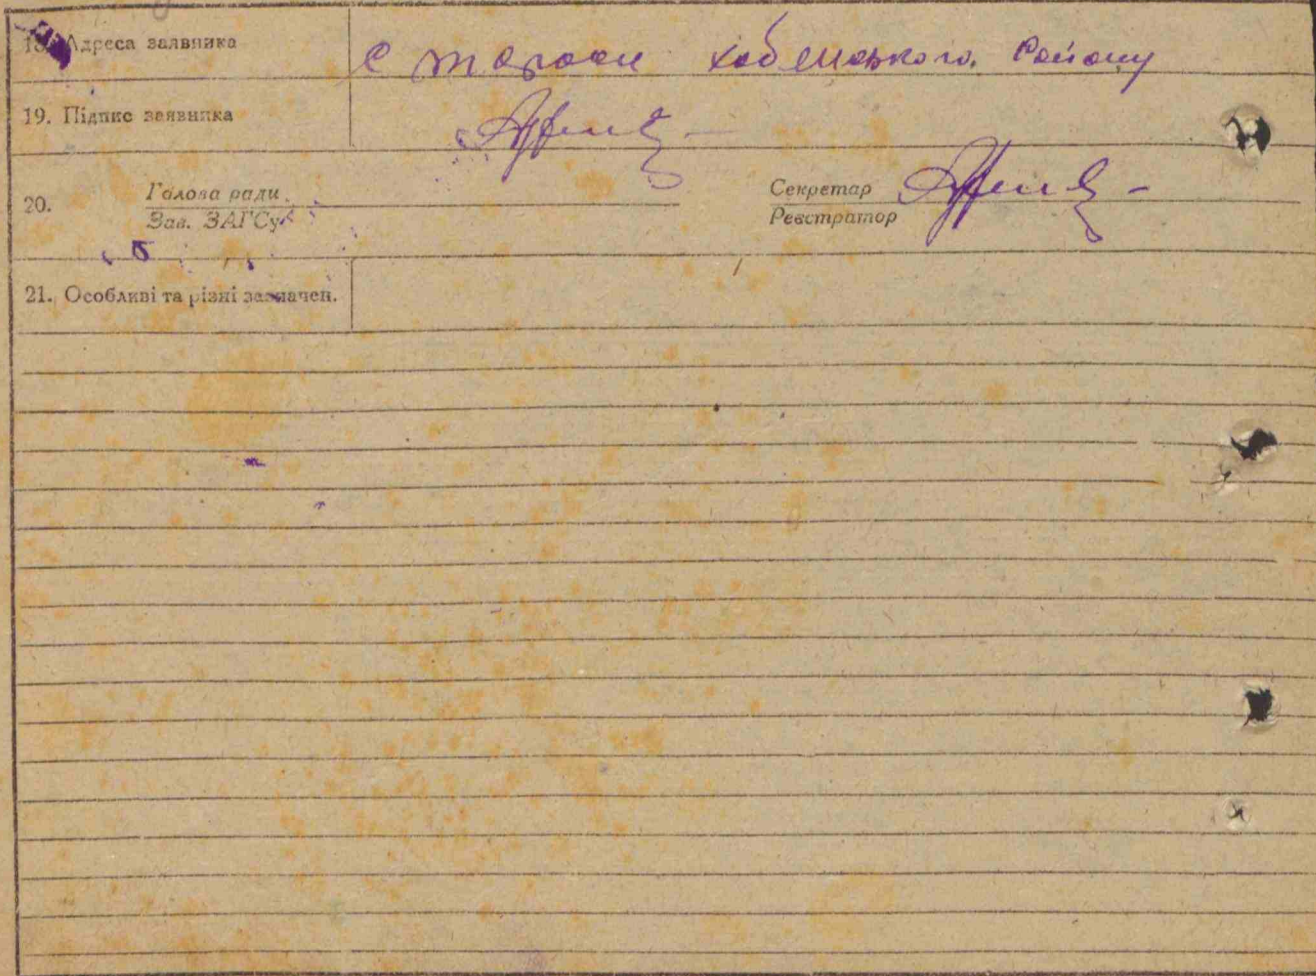 18. Адреса заявника
с Тараси Хабенського Району
19. Підпис заявника
20. Голова ради
Зав. ЗАГСу
Секретар
Реєстратор
21. Особливі та різні зазначен.